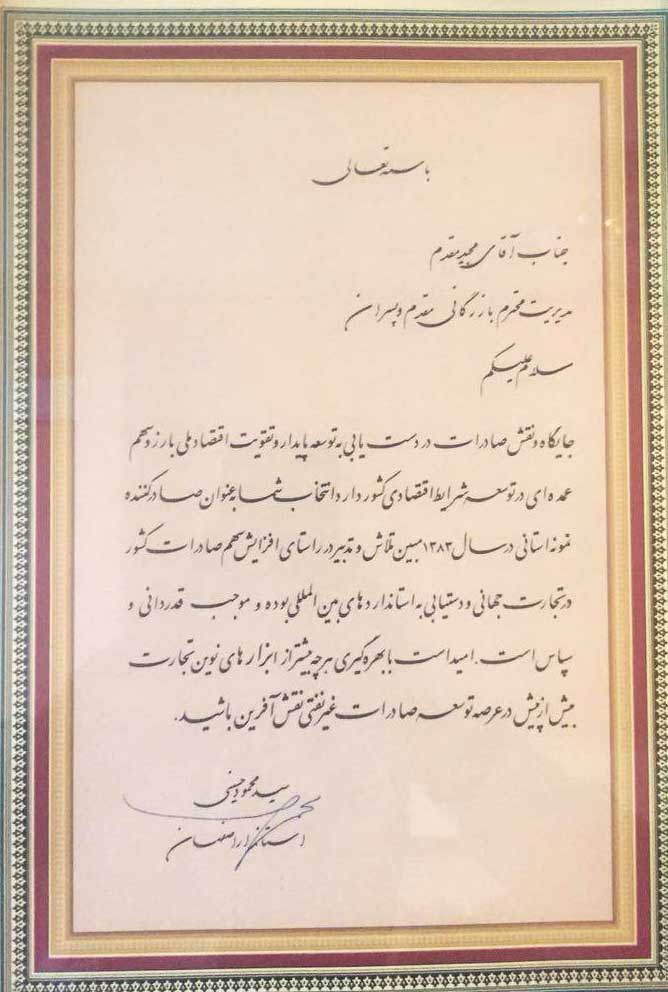 باسمه تعالی
جناب آقای مجید مقدم
مدیریت محترم بازرگانی مقدم و پسران
سلام علیکم
جایگاه و نقش صادرات در دست یابی به توسعه پایدار و تقویت اقتصاد ملی بارز و سهم
عمده ای در توسعه شرایط اقتصادی کشور دارد انتخاب شما به عنوان صادر کننده
نمونه استانی در سال ۱۳۸۳ مبین تلاش و تدبیر در راستای افزایش سهم صادرات کشور
در تجارت جهانی و دستیابی به استانداردهای بین المللی بوده و موجب قدردانی و
سپاس است. امید است با بهره گیری هرچه بیشتر از ابزارهای نوین تجارت
بیش از پیش در عرصه توسعه صادرات غیر نفتی نقش آفرین باشید.
سید محمود حسینی
استاندار اصفهان